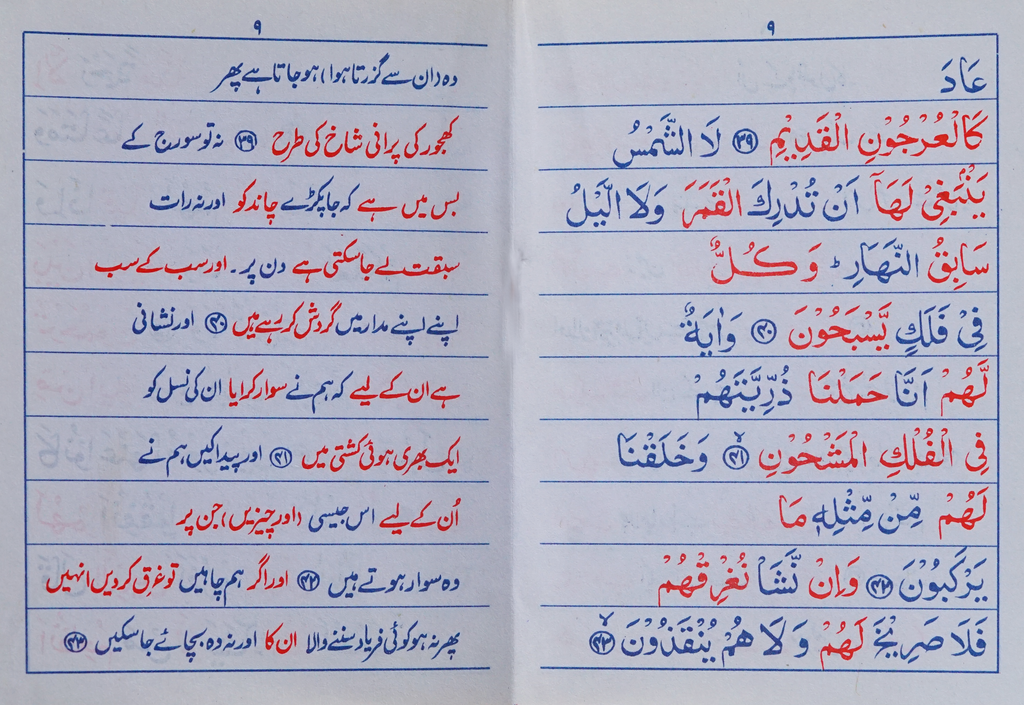 ۹
عَادَ
كَالْعُرْجُوْنِ الْقَدِيْمِ ﴿۳۹﴾ لَا الشَّمْسُ
يَنْۢبَغِيْ لَهَاۤ اَنْ تُدْرِكَ الْقَمَرَ وَلَا الَّيْلُ
سَابِقُ النَّهَارِ ؕ وَ كُلٌّ
فِيْ فَلَكٍ يَّسْبَحُوْنَ ﴿۴۰﴾ وَاٰيَةٌ
لَّهُمْ اَنَّا حَمَلْنَا ذُرِّيَّتَهُمْ
فِي الْفُلْكِ الْمَشْحُوْنِ ﴿۴۱﴾ وَخَلَقْنَا
لَهُمْ مِّنْ مِّثْلِهٖ مَا
يَرْكَبُوْنَ ﴿۴۲﴾ وَاِنْ نَّشَاْ نُغْرِقْهُمْ
فَلَا صَرِيْخَ لَهُمْ وَ لَا هُمْ يُنْقَذُوْنَ ﴿۴۳﴾
۹
وہ (ان سے گزرتا ہوا) ہو جاتا ہے پھر
کھجور کی پرانی شاخ کی طرح ﴿۳۹﴾ نہ تو سورج کے
بس میں ہے کہ جا پکڑے چاند کو اور نہ رات
سبقت لے جا سکتی ہے دن پر۔ اور سب کے سب
اپنے اپنے مدار میں گردش کر رہے ہیں ﴿۴۰﴾ اور نشانی
ہے ان کے لیے کہ ہم نے سوار کرایا ان کی نسل کو
ایک بھری ہوئی کشتی میں ﴿۴۱﴾ اور پیدا کیں ہم نے
اُن کے لیے اس جیسی (اور چیزیں) جن پر
وہ سوار ہوتے ہیں ﴿۴۲﴾ اور اگر ہم چاہیں تو غرق کر دیں انہیں
پھر نہ ہو کوئی فریاد سننے والا ان کا اور نہ وہ بچائے جا سکیں ﴿۴۳﴾